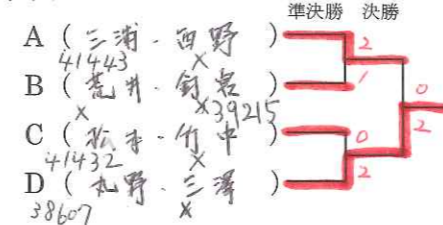 準決勝 決勝
A ( 三浦 - 西野 ) 2
41443 ×
B ( 荒井 - 釘宮 ) 1 0
× ×39215 2
C ( 松本 - 竹中 ) 0
41432 ×
D ( 丸野 - 三澤 ) 2
38607 ×